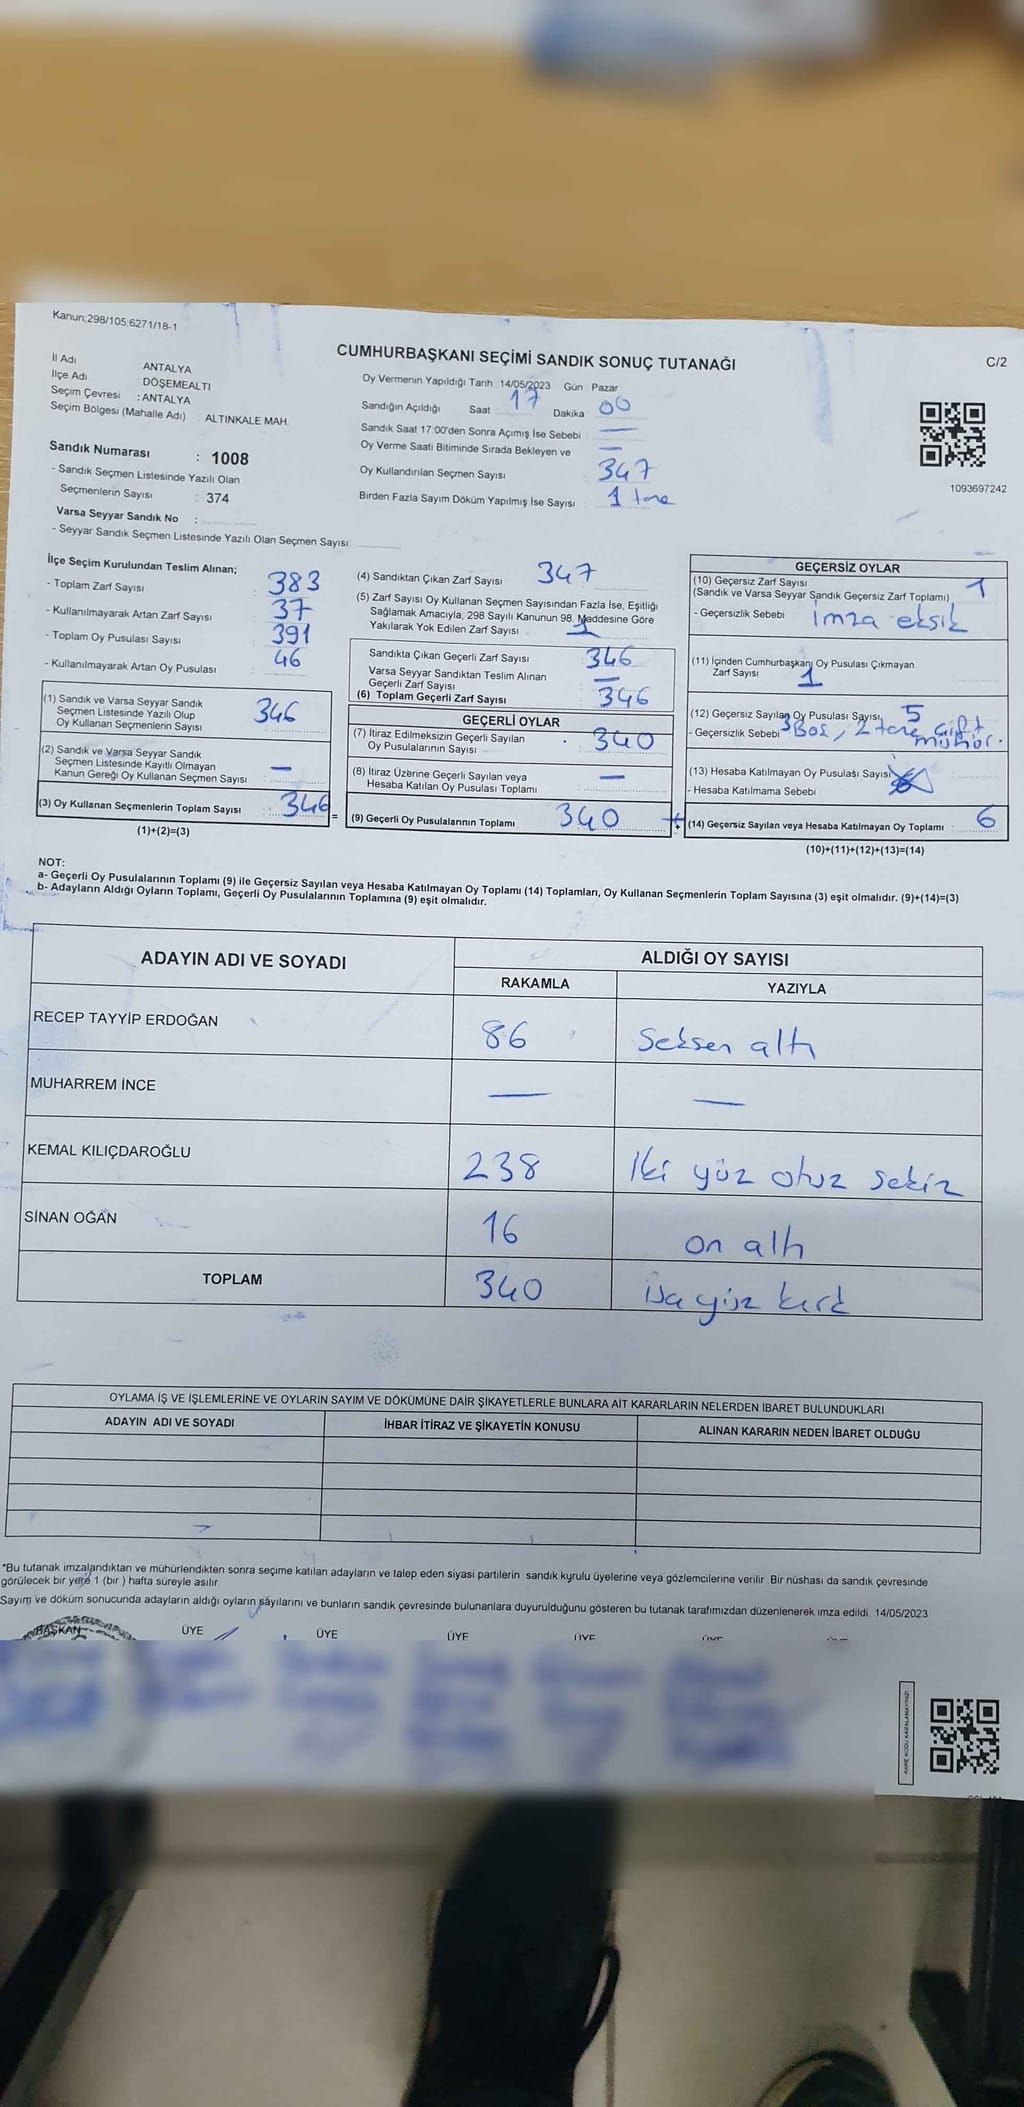 Kanun;298/105;6271/18-1
CUMHURBAŞKANI SEÇİMİ SANDIK SONUÇ TUTANAĞI
C/2
İl Adı ANTALYA
İlçe Adı DÖŞEMEALTI
Seçim Çevresi : ANTALYA
Seçim Bölgesi (Mahalle Adı) : ALTINKALE MAH.
Oy Vermenin Yapıldığı Tarih 14/05/2023 Gün Pazar
Sandığın Açıldığı Saat 17 Dakika 00
Sandık Saat 17:00'den Sonra Açılmış İse Sebebi —
Oy Verme Saati Bitiminde Sırada Bekleyen ve —
Oy Kullandırılan Seçmen Sayısı 347
Birden Fazla Sayım Döküm Yapılmış İse Sayısı 1 tane
1093697242
Sandık Numarası : 1008
- Sandık Seçmen Listesinde Yazılı Olan
Seçmenlerin Sayısı : 374
Varsa Seyyar Sandık No :
- Seyyar Sandık Seçmen Listesinde Yazılı Olan Seçmen Sayısı:
İlçe Seçim Kurulundan Teslim Alınan;
- Toplam Zarf Sayısı 383
- Kullanılmayarak Artan Zarf Sayısı 37
- Toplam Oy Pusulası Sayısı 391
- Kullanılmayarak Artan Oy Pusulası 46
(1) Sandık ve Varsa Seyyar Sandık
Seçmen Listesinde Yazılı Olup
Oy Kullanan Seçmenlerin Sayısı 346
(2) Sandık ve Varsa Seyyar Sandık
Seçmen Listesinde Kayıtlı Olmayan
Kanun Gereği Oy Kullanan Seçmen Sayısı —
(3) Oy Kullanan Seçmenlerin Toplam Sayısı 346
(1)+(2)=(3)
=
(4) Sandıktan Çıkan Zarf Sayısı 347
(5) Zarf Sayısı Oy Kullanan Seçmen Sayısından Fazla İse, Eşitliği
Sağlamak Amacıyla, 298 Sayılı Kanunun 98. Maddesine Göre
Yakılarak Yok Edilen Zarf Sayısı 1
Sandıkta Çıkan Geçerli Zarf Sayısı 346
Varsa Seyyar Sandıktan Teslim Alınan
Geçerli Zarf Sayısı —
(6) Toplam Geçerli Zarf Sayısı 346
GEÇERLİ OYLAR
(7) İtiraz Edilmeksizin Geçerli Sayılan
Oy Pusulalarının Sayısı 340
(8) İtiraz Üzerine Geçerli Sayılan veya
Hesaba Katılan Oy Pusulası Toplamı —
(9) Geçerli Oy Pusulalarının Toplamı 340
+
GEÇERSİZ OYLAR
(10) Geçersiz Zarf Sayısı 1
(Sandık ve Varsa Seyyar Sandık Geçersiz Zarf Toplamı)
- Geçersizlik Sebebi imza eksik
(11) İçinden Cumhurbaşkanı Oy Pusulası Çıkmayan
Zarf Sayısı 1
(12) Geçersiz Sayılan Oy Pusulası Sayısı 5
- Geçersizlik Sebebi 3 Boş, 2 tane çift
mühür.
(13) Hesaba Katılmayan Oy Pusulası Sayısı
- Hesaba Katılmama Sebebi
(14) Geçersiz Sayılan veya Hesaba Katılmayan Oy Toplamı 6
(10)+(11)+(12)+(13)=(14)
NOT:
a- Geçerli Oy Pusulalarının Toplamı (9) ile Geçersiz Sayılan veya Hesaba Katılmayan Oy Toplamı (14) Toplamları, Oy Kullanan Seçmenlerin Toplam Sayısına (3) eşit olmalıdır. (9)+(14)=(3)
b- Adayların Aldığı Oyların Toplamı, Geçerli Oy Pusulalarının Toplamına (9) eşit olmalıdır.
ADAYIN ADI VE SOYADI
ALDIĞI OY SAYISI
RAKAMLA YAZIYLA
RECEP TAYYİP ERDOĞAN 86 Seksen altı
MUHARREM İNCE — —
KEMAL KILIÇDAROĞLU 238 İki yüz otuz sekiz
SİNAN OĞAN 16 on altı
TOPLAM 340 üç yüz kırk
OYLAMA İŞ VE İŞLEMLERİNE VE OYLARIN SAYIM VE DÖKÜMÜNE DAİR ŞİKAYETLERLE BUNLARA AİT KARARLARIN NELERDEN İBARET BULUNDUKLARI
ADAYIN ADI VE SOYADI İHBAR İTİRAZ VE ŞİKAYETİN KONUSU ALINAN KARARIN NEDEN İBARET OLDUĞU
*Bu tutanak imzalandıktan ve mühürlendikten sonra seçime katılan adayların ve talep eden siyasi partilerin sandık kurulu üyelerine veya gözlemcilerine verilir. Bir nüshası da sandık çevresinde
görülecek bir yere 1 (bir ) hafta süreyle asılır.
Sayım ve döküm sonucunda adayların aldığı oyların sayılarını ve bunların sandık çevresinde bulunanlara duyurulduğunu gösteren bu tutanak tarafımızdan düzenlenerek imza edildi. 14/05/2023
BAŞKAN ÜYE ÜYE ÜYE ÜYE ÜYE